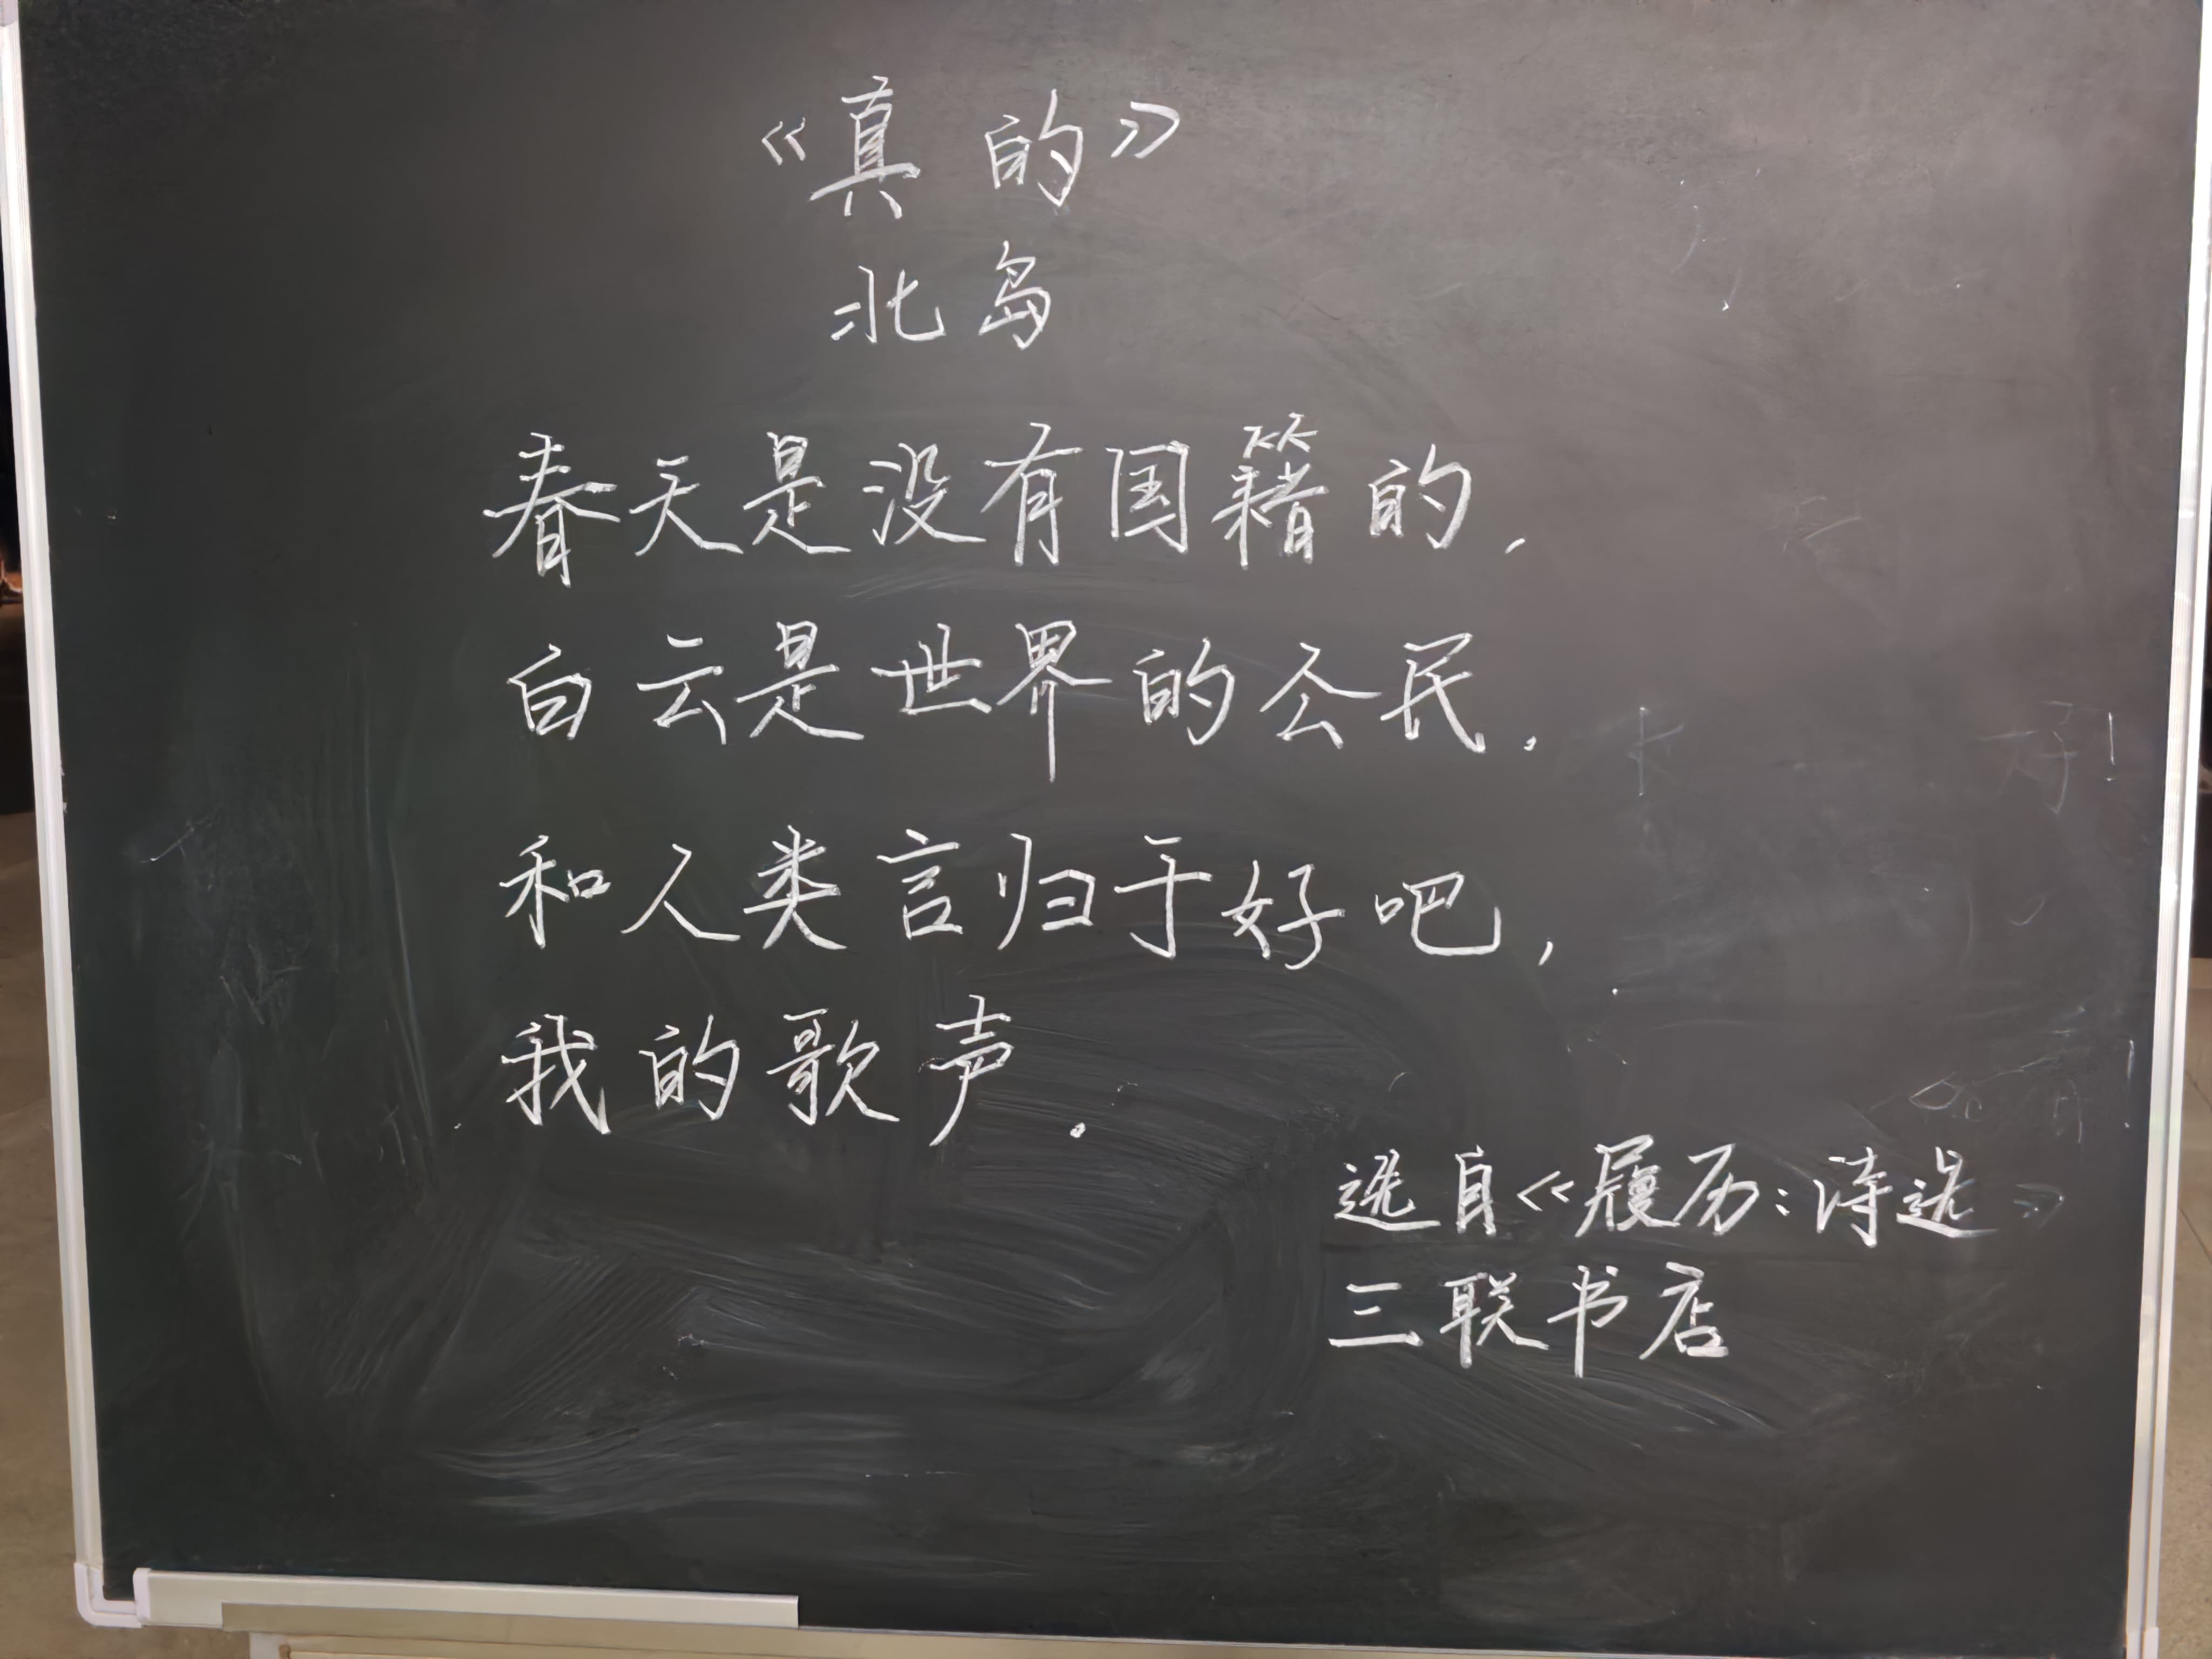 《真的》
北岛
春天是没有国籍的，
白云是世界的公民，
和人类言归于好吧，
我的歌声。
选自《履历：诗选》
三联书店